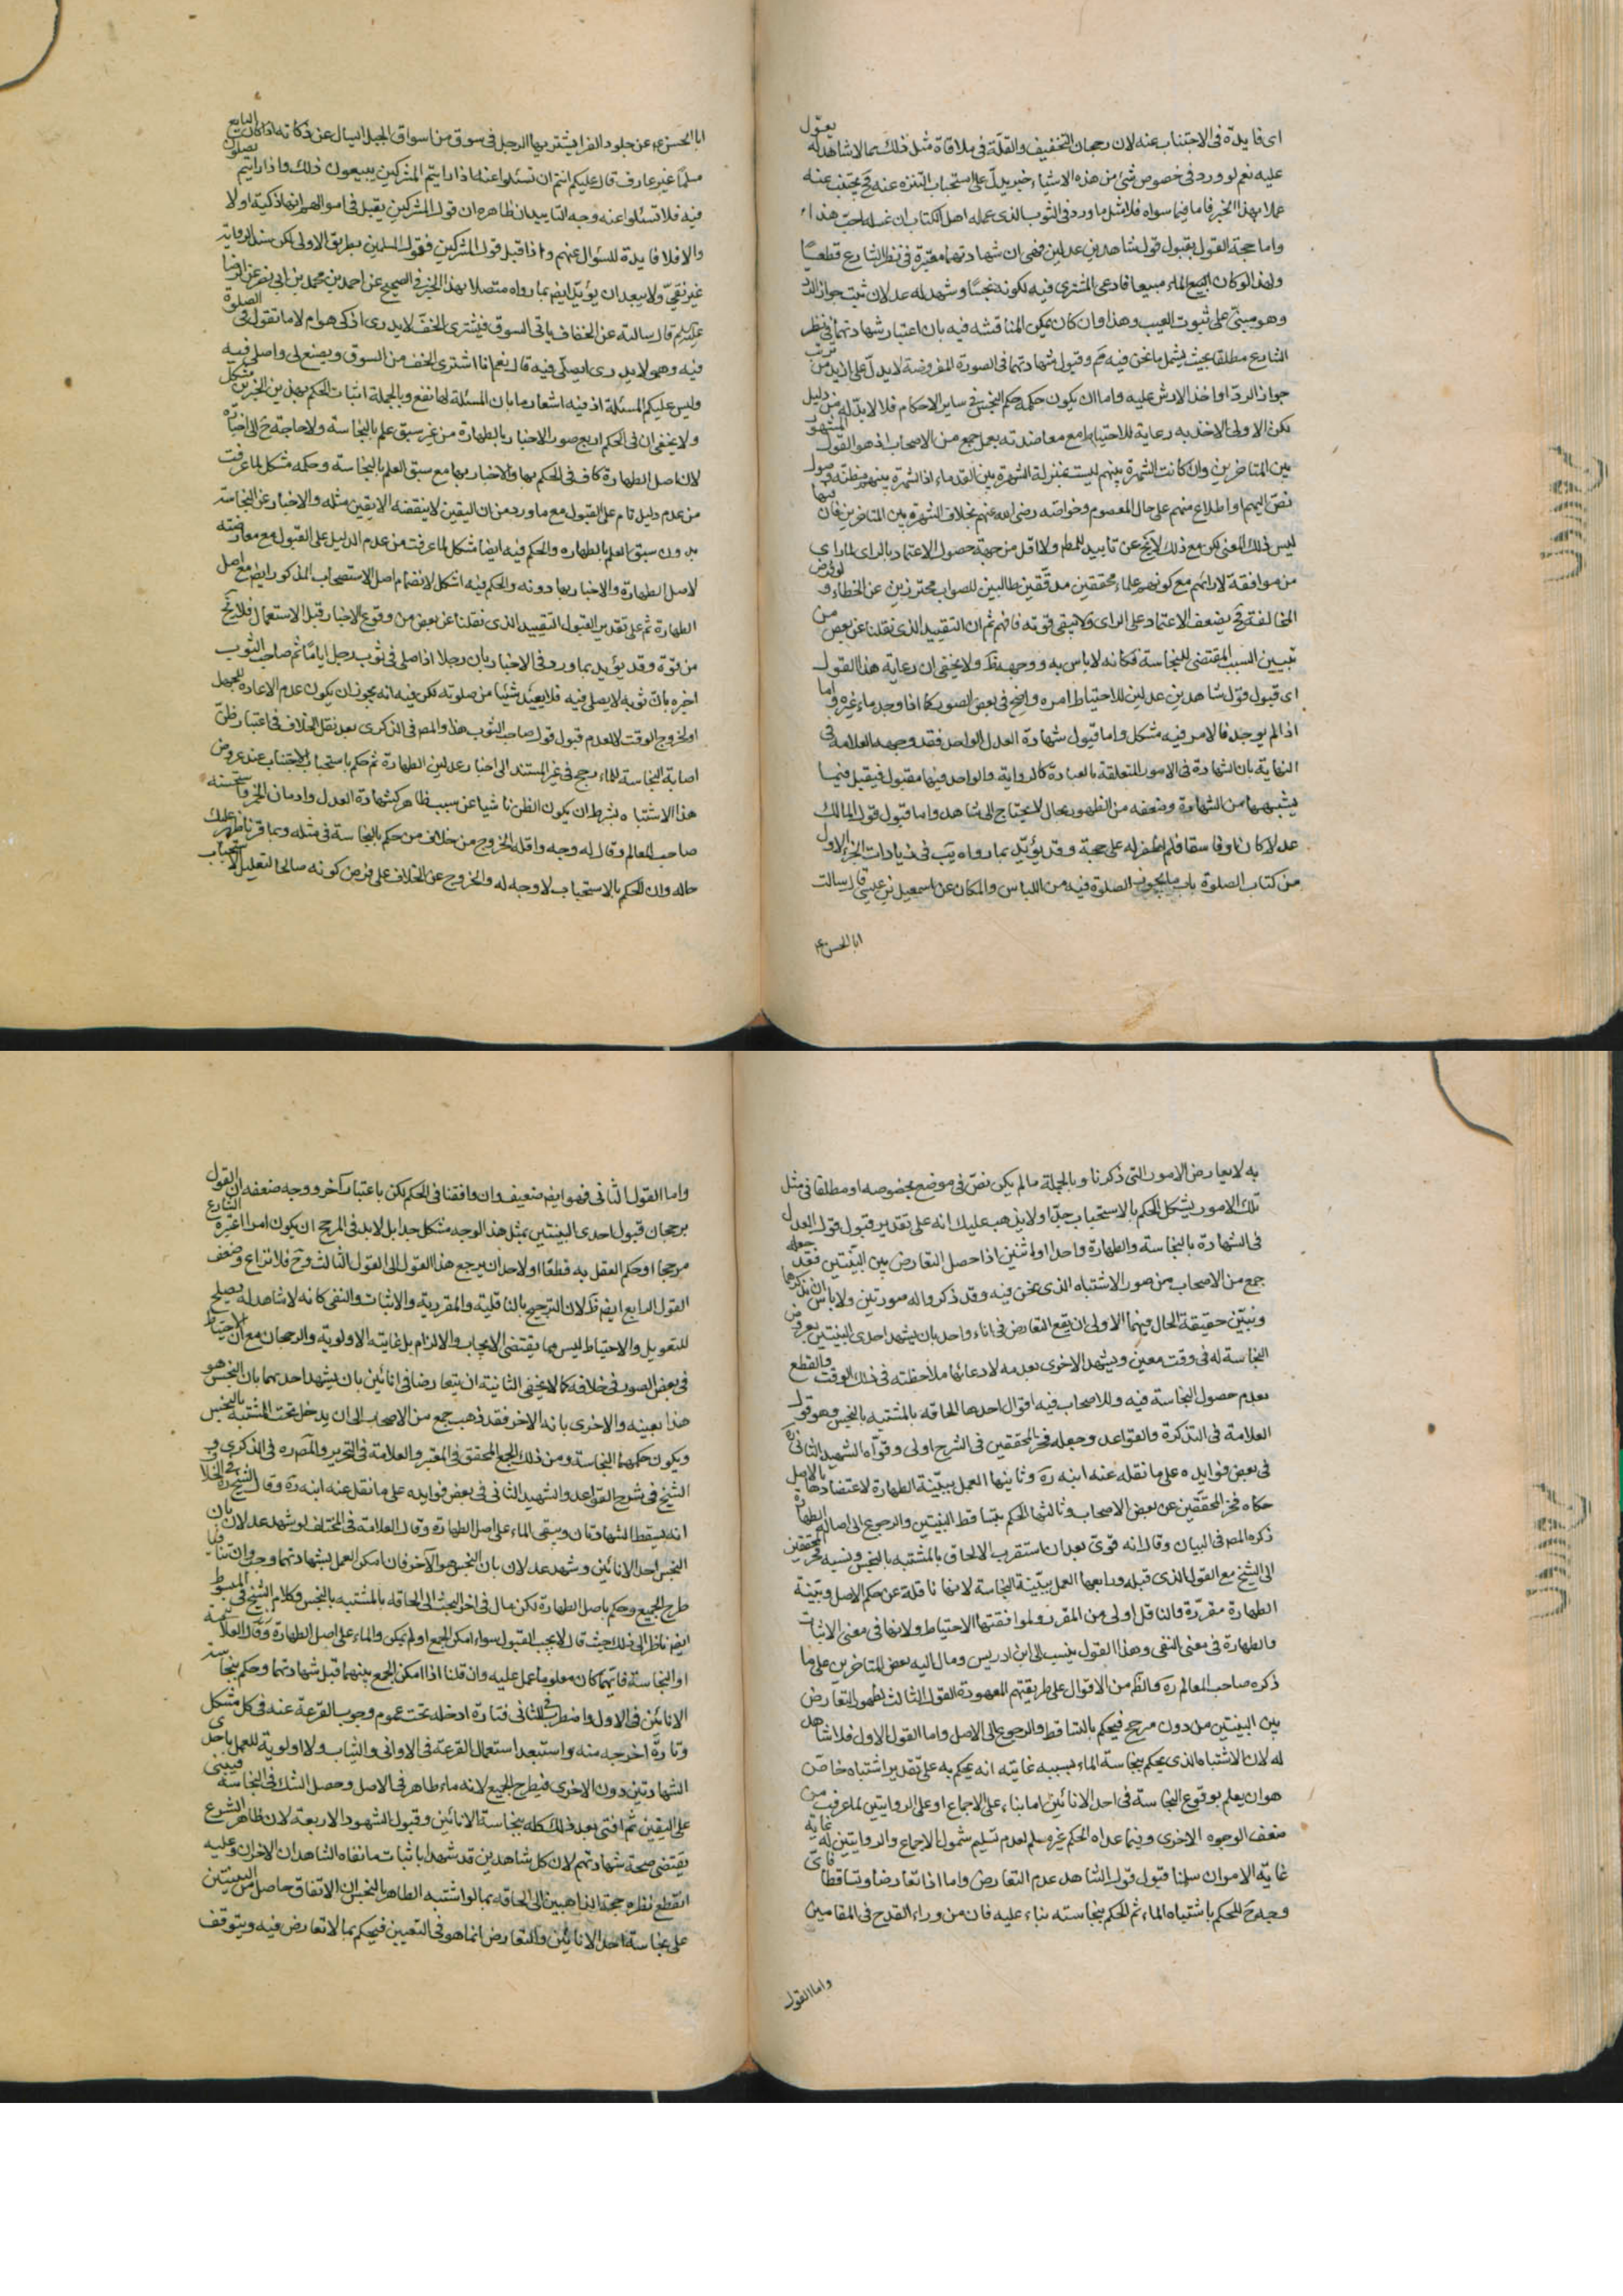 اى فايدة فى الاجتناب عنه لان رجحان التخفيف والقلة فى ملاقاة مثل ذلك مما لا شاهد له يعوّل
عليه نعم لو ورد فى خصوص شئ من هذه الاشياء خبر يدل على استحباب التنزه عنه فح يجتنب عنه
عملا بهذا الخبر فاما فيما سواه فلا مثل ما ورد فى الثوب الذى عمله اهل الكتاب ان غسله احب هذا
واما حجة القول بقبول قول شاهدين عدلين فهى ان شهادتهما معتبرة فى نظر الشارع قطعا
ولهذا لو كان الماء مبيعا فادعى المشترى فيه لكونه نجسا وشهد له عدلان ثبت جواز الرد
وهو مبنى على ثبوت العيب وهذا وان كان يمكن المناقشه فيه بان اعتبار شهادتهما فى نظر
الشارع مطلقا بحيث يشمل ما نحن فيه مم وقبول شهادتهما فى الصورة المفروضة لا يدل على ازيد من ترتب
جواز الرد او اخذ الارش عليه واما ان يكون حكمه حكم النجس فى ساير الاحكام فلا لا بد له من دليل
لكن الاولى الاخذ به رعاية للاحتياط مع معاضدته بعمل جمع من الاصحاب اذ هو القول المشهور
بين المتاخرين وان كانت الشهرة بينهم ليست بمنزلة الشهرة بين القدماء اذ الشهرة بينهم مظنة وصول
نص اليهم او اطلاع منهم على حال المعصوم وخواصه رضى الله عنهم بخلاف الشهرة بين المتاخرين فان فيها
ليس ذلك المعنى لكن مع ذلك لا يخ عن تاييد للمط ولا اقل من جهة حصول الاعتماد بالراى لما راى
من موافقة لارائهم مع كونهم علماء محققين مدققين طالبين للصواب محترزين عن الخطاء ولو فرض
المخالفة فح يضعف الاعتماد على الراى ولا يبقى قوته فافهم ثم ان التقييد الذى نقلنا عن بعض من
تبيين السبب المقتضى للنجاسة فكانه لا باس به ووجهه ظ ولا يخفى ان رعاية هذا القول
اى قبول قول شاهدين عدلين للاحتياط امره واضح فى بعض الصور كما اذا وجد ماء غيره واما
اذا لم يوجد فالامر فيه مشكل واما قبول شهادة العدل الواحد فقد وجهه العلامة فى
النهاية بان الشهادة فى الامور المتعلقة بالعبادة كالرواية والواحد فيها مقبول فيقبل فيما
يشبهها من الشهادة وضعفه من الظهور بحال لا يحتاج الى شاهد واما قبول قول المالك
عدلا كان او فاسقا فلم اظفر له على حجة وقد يؤيد بما رواه يب فى زيادات الجزء الاول
من كتاب الصلوة باب ما يجوز الصلوة فيه من اللباس والمكان عن اسمعيل بن عيسى قال سالت
ابا الحسن ع
ابا الحسن ع عن جلود الفرا يشتريها الرجل فى سوق من اسواق الجبل ايسال عن ذكاته اذا كان البايع
مسلما غير عارف قال عليكم انتم ان تسئلوا عنه اذا رايتم المشركين يبيعون ذلك واذا رايتم يصلون
فيه فلا تسئلوا عنه وجه التاييد ان ظاهره ان قول المشركين يقبل فى اموالهم انها ذكية او لا
والا فلا فايدة للسؤال عنهم واذا قبل قول المشركين فقول المسلمين بطريق الاولى لكن سند الرواية
غير نقى ولا يبعد ان يؤيد ايضا بما رواه متصلا بهذا الخبر فى الصحيح عن احمد بن محمد بن ابى نصر عن الرضا
عليه السلم قال سالته عن الخفاف ياتى السوق فيشترى الخف لا يدرى اذكى هو ام لا ما تقول فى الصلوة
فيه وهو لا يدرى ايصلى فيه قال نعم انا اشترى الخف من السوق ويصنع لى واصلى فيه
وليس عليكم المسئلة اذ فيه اشعار ما بان المسئلة لها نفع وبالجملة اثبات الحكم بهذين الخبرين مشكل
ولا يخفى ان فى الحكم اربع صور الاخبار بالطهارة من غير سبق علم بالنجاسة ولا حاجة ح الى اخباره
لان اصل الطهارة كاف فى الحكم بها والاخبار بها مع سبق العلم بالنجاسة وحكمه مشكل لما عرفت
من عدم دليل تام على القبول مع ما ورد من ان اليقين لا ينقضه الا يقين مثله والاخبار عن النجاسة
بدون سبق العلم بالطهاره والحكم فيه ايضا مشكل لما عرفت من عدم الدليل على القبول مع معارضته
لاصل الطهارة والاخبار بها دونه والحكم فيه اشكل لانضمام اصل الاستصحاب المذكور ايضا مع اصل
الطهارة ثم على تقدير القبول التقييد الذى نقلنا عن بعض من وقوع الاخبار قبل الاستعمال فلا يخ
من قوة وقد يؤيد بما ورد فى الاخبار بان رجلا اذا صلى فى ثوب رجل اياما ثم صاحب الثوب
اخبره بان ثوبه لا يصلى فيه فلا يعيد شيئا من صلوته لكن فيه انه يجوز ان يكون عدم الاعادة للجهل
او لخروج الوقت لا لعدم قبول قول صاحب الثوب هذا والمص فى الذكرى بعد نقل الخلاف فى اعتبار ظن
اصابة النجاسة للماء رجح فى غير المستند الى اخبار عدلين الطهارة ثم حكم باستحباب الاجتناب عند عروض
هذا الاشتباه بشرط ان يكون الظن ناشيا عن سبب ظاهر كشهادة العدل وادمان الخمر واستحسنه
صاحب المعالم وقال له وجه واقله الخروج من خلاف من حكم بالنجاسة فى مثله وبما قررنا ظهر عليك
حاله وان للحكم بالاستحباب لا وجه له والخروج عن الخلاف على فرض كونه صالحا لتعليل الاستحباب
به لا يعارض الامور التى ذكرنا وبالجملة ما لم يكن نص فى موضع بخصوصه او مطلقا فى مثل
تلك الامور يشكل الحكم بالاستحباب جدا ولا يذهب عليك انه على تقدير قبول قول العدل
فى الشهادة بالنجاسة والطهارة واحدا او اثنين اذا حصل التعارض بين البينتين فقد جعله
جمع من الاصحاب من صور الاشتباه الذى نحن فيه وقد ذكروا له صورتين ولا باس ان نذكرها
ونبين حقيقة الحال فيهما الاولى ان يقع التعارض فى اناء واحد بان يشهد احدى البينتين بعروض
النجاسة له فى وقت معين ويشهد الاخرى بعدمه لادعائها ملاحظته فى ذلك الوقت والقطع
بعدم حصول النجاسة فيه وللاصحاب فيه اقوال احدها الحاقه بالمشتبه بالنجس وهو قول
العلامة فى التذكرة والقواعد وجعله فخر المحققين فى الشرح اولى وقواه الشهيد الثانى ره
فى بعض فوايده على ما نقله عنه ابنه ره وثانيها العمل ببينة الطهارة لاعتضادها بالاصل
حكاه فخر المحققين عن بعض الاصحاب وثالثها الحكم بتساقط البينتين والرجوع الى اصالة الطهارة
ذكره المص فى البيان وقال انه قوى بعد ان استقرب الالحاق بالمشتبه بالنجس ونسبه فخر المحققين
الى الشيخ مع القول الذى قبله ورابعها العمل ببينة النجاسة لانها ناقلة عن حكم الاصل وبينة
الطهارة مقررة والناقل اولى من المقرر ولموافقتها الاحتياط ولانها فى معنى الاثبات
والطهارة فى معنى النفى وهذا القول ينسب الى ابن ادريس ومال اليه بعض المتاخرين على ما
ذكره صاحب المعالم ره والظ من الاقوال على طريقتهم المعهودة القول الثالث لظهور التعارض
بين البينتين من دون مرجح فيحكم بالتساقط والرجوع الى الاصل واما القول الاول فلا شاهد
له لان الاشتباه الذى يحكم بنجاسة الماء بسببه غايته انه يحكم به على تقدير اشتباه خاص
هو ان يعلم بوقوع النجاسة فى احد الانائين اما بناء على الاجماع او على الروايتين لما عرفت من
ضعف الوجوه الاخرى وفيما عداه الحكم غير مسلم لعدم تسليم شمول الاجماع والروايتين له غاية
غاية الامر ان سلمنا قبول قول الشاهد عدم التعارض واما اذا تعارضا وتساقطا فاى
وجه ح للحكم باشتباه الماء ثم الحكم بنجاسته بناء عليه فان من وراء القدح فى المقامين
واما القول
واما القول الثانى فهو ايضا ضعيف وان وافقنا فى الحكم لكن باعتبار آخر ووجه ضعفه ان القول
برجحان قبول احدى البينتين بمثل هذا الوجه مشكل جدا بل لا بد فى المرجح ان يكون امرا اعتبره الشارع
مرجحا او حكم العقل به قطعا او لاحد ان يرجع هذا القول الى القول الثالث وح فلا نزاع وضعف
القول الرابع ايضا ظ لان الترجيح بالناقلية والمقررية والاثبات والنفى كانه لا شاهد له يصلح
للتعويل والاحتياط ليس مما يقتضى الايجاب والالزام بل غايته الاولوية والرجحان مع ان الاحتياط
فى بعض الصور فى خلافه كما لا يخفى الثانية ان يتعارضا فى انائين بان يشهد احدهما بان النجس هو
هذا بعينه والاخرى بانه الاخر فقد ذهب جمع من الاصحاب الى ان يدخل تحت المشتبه بالنجس
ويكون حكمهما النجاسة ومن ذلك الجمع المحقق فى المعتبر والعلامة فى التحرير والمص ره فى الذكرى و
الشيخ فى شرح القواعد والشهيد الثانى فى بعض فوايده على ما نقل عنه ابنه ره وقال الشيخ ره فى الخلاف
انه يسقط الشهادتان ويبقى الماء على اصل الطهارة وقال العلامة فى المختلف لو شهد عدلان بان
النجس احد الانائين وشهد عدلان بان النجس هو الآخر فان امكن العمل بشهادتهما وجب وان تنافيا
طرح الجميع وحكم باصل الطهارة لكن مال فى اخر البحث الى الحاقه بالمشتبه بالنجس وكلام الشيخ فى المبسوط
ايضا ناظر الى ذلك حيث قال لا يجب القبول سواء امكن الجمع او لم يكن والماء على اصل الطهارة وقال العلامة
او النجاسة فايهما كان معلوما عمل عليه وان قلنا اذا امكن الجمع بينهما قبل شهادتهما وحكم بنجاسة
الانائين فى الاول واضطرب فى الثانى فتارة ادخله تحت عموم وجوب القرعة عنه فى كل مشكل
وتارة اخرجه منه واستبعد استعمال القرعة فى الاوانى والثياب ولا اولوية للعمل باحدى
الشهادتين دون الاخرى فيطرح الجميع لانه ماء طاهر فى الاصل وحصل الشك فى النجاسة فيبنى
على اليقين ثم افتى بعد ذلك كله بنجاسة الانائين وقبول الشهود الاربعة لان ظاهر الشرع
يقتضى صحة شهادتهم لان كل شاهدين قد شهدا باثبات ما نفاه الشاهدان الاخران وعليه
انقطع نظره حجة الذاهبين الى الحاقه بما لو اشتبه الطاهر بالنجس ان الاتفاق حاصل من البينتين
على نجاسة احد الانائين والتعارض انما هو فى التعيين فيحكم بما لا تعارض فيه ويتوقف